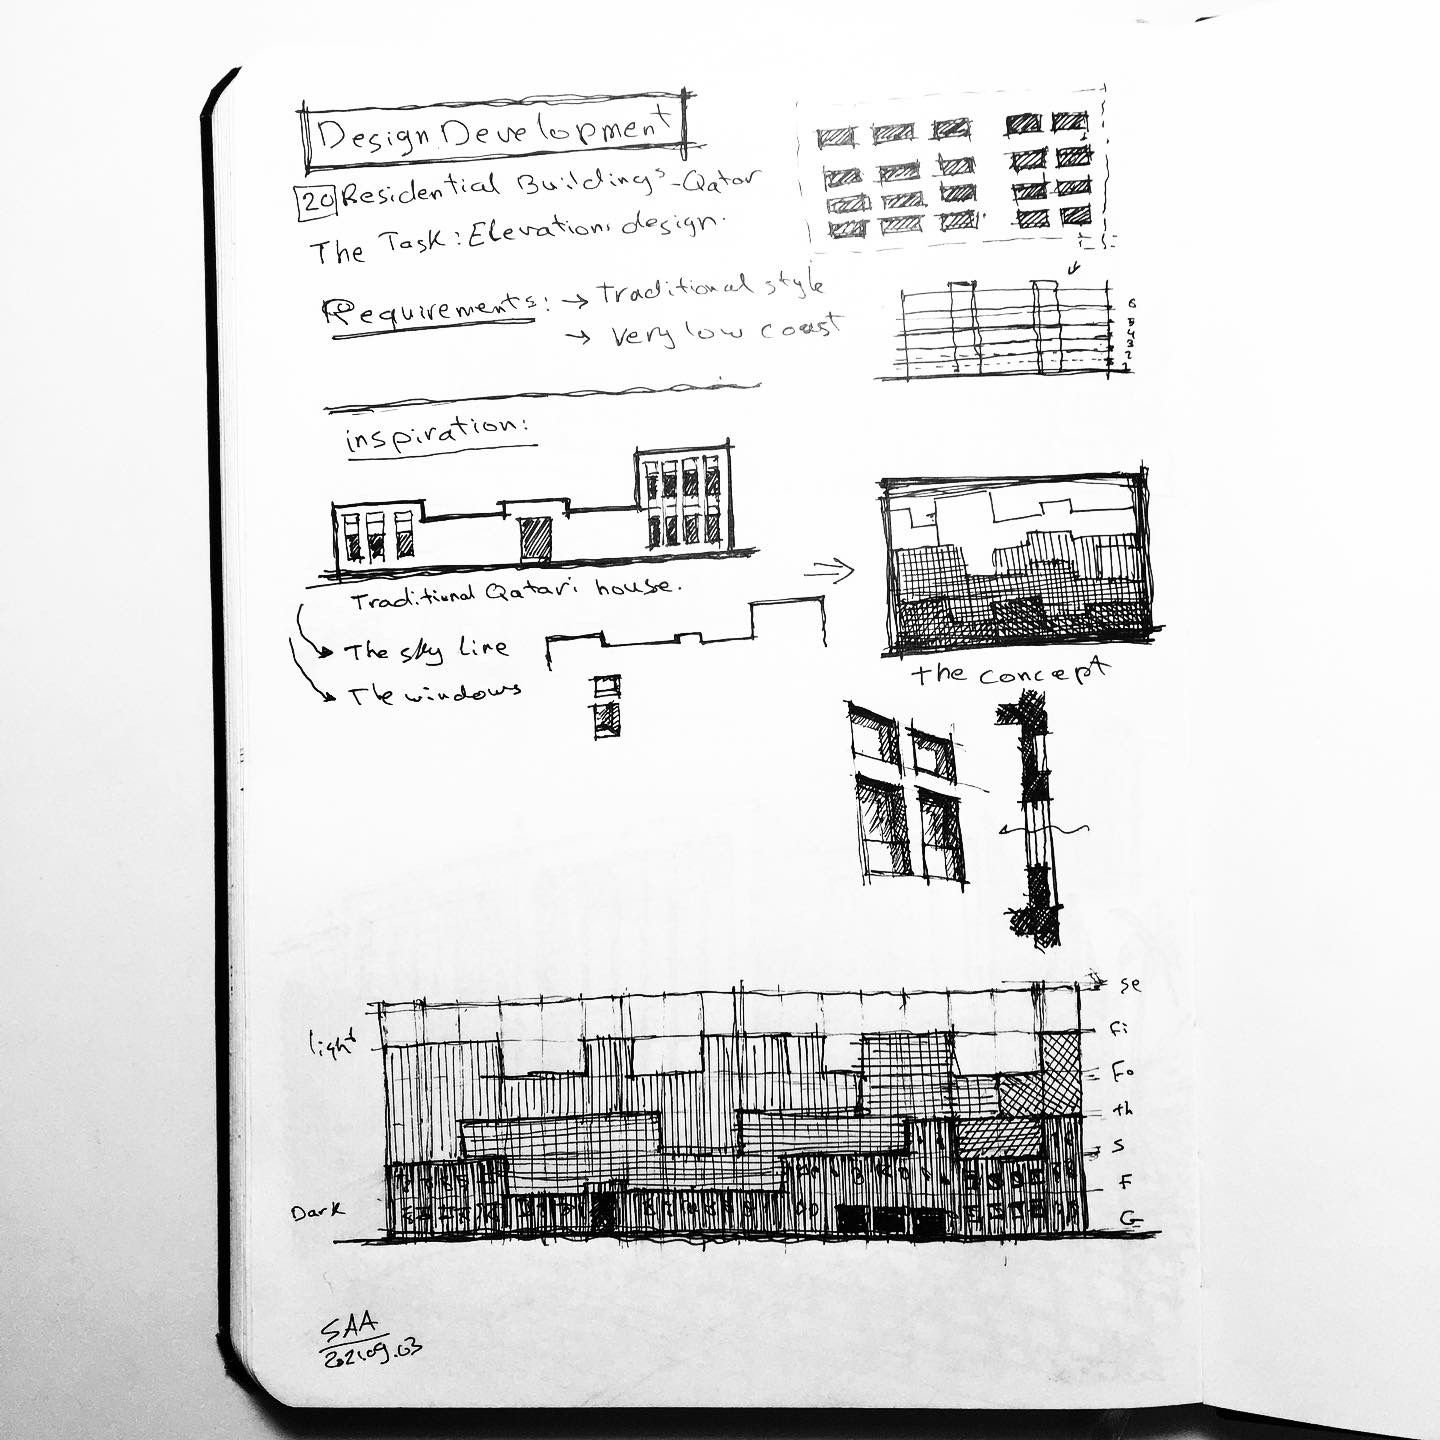 Design Development
20 Residential Buildings - Qatar
The Task: Elevations design.
Requirements: → Traditional style
→ Very low coast
6
5
4
3
2
1
inspiration:
Traditional Qatari house.
The sky Line
The windows
the concept
light
Dark
Se
Fi
Fo
th
S
F
G
SAA
2021.09.03